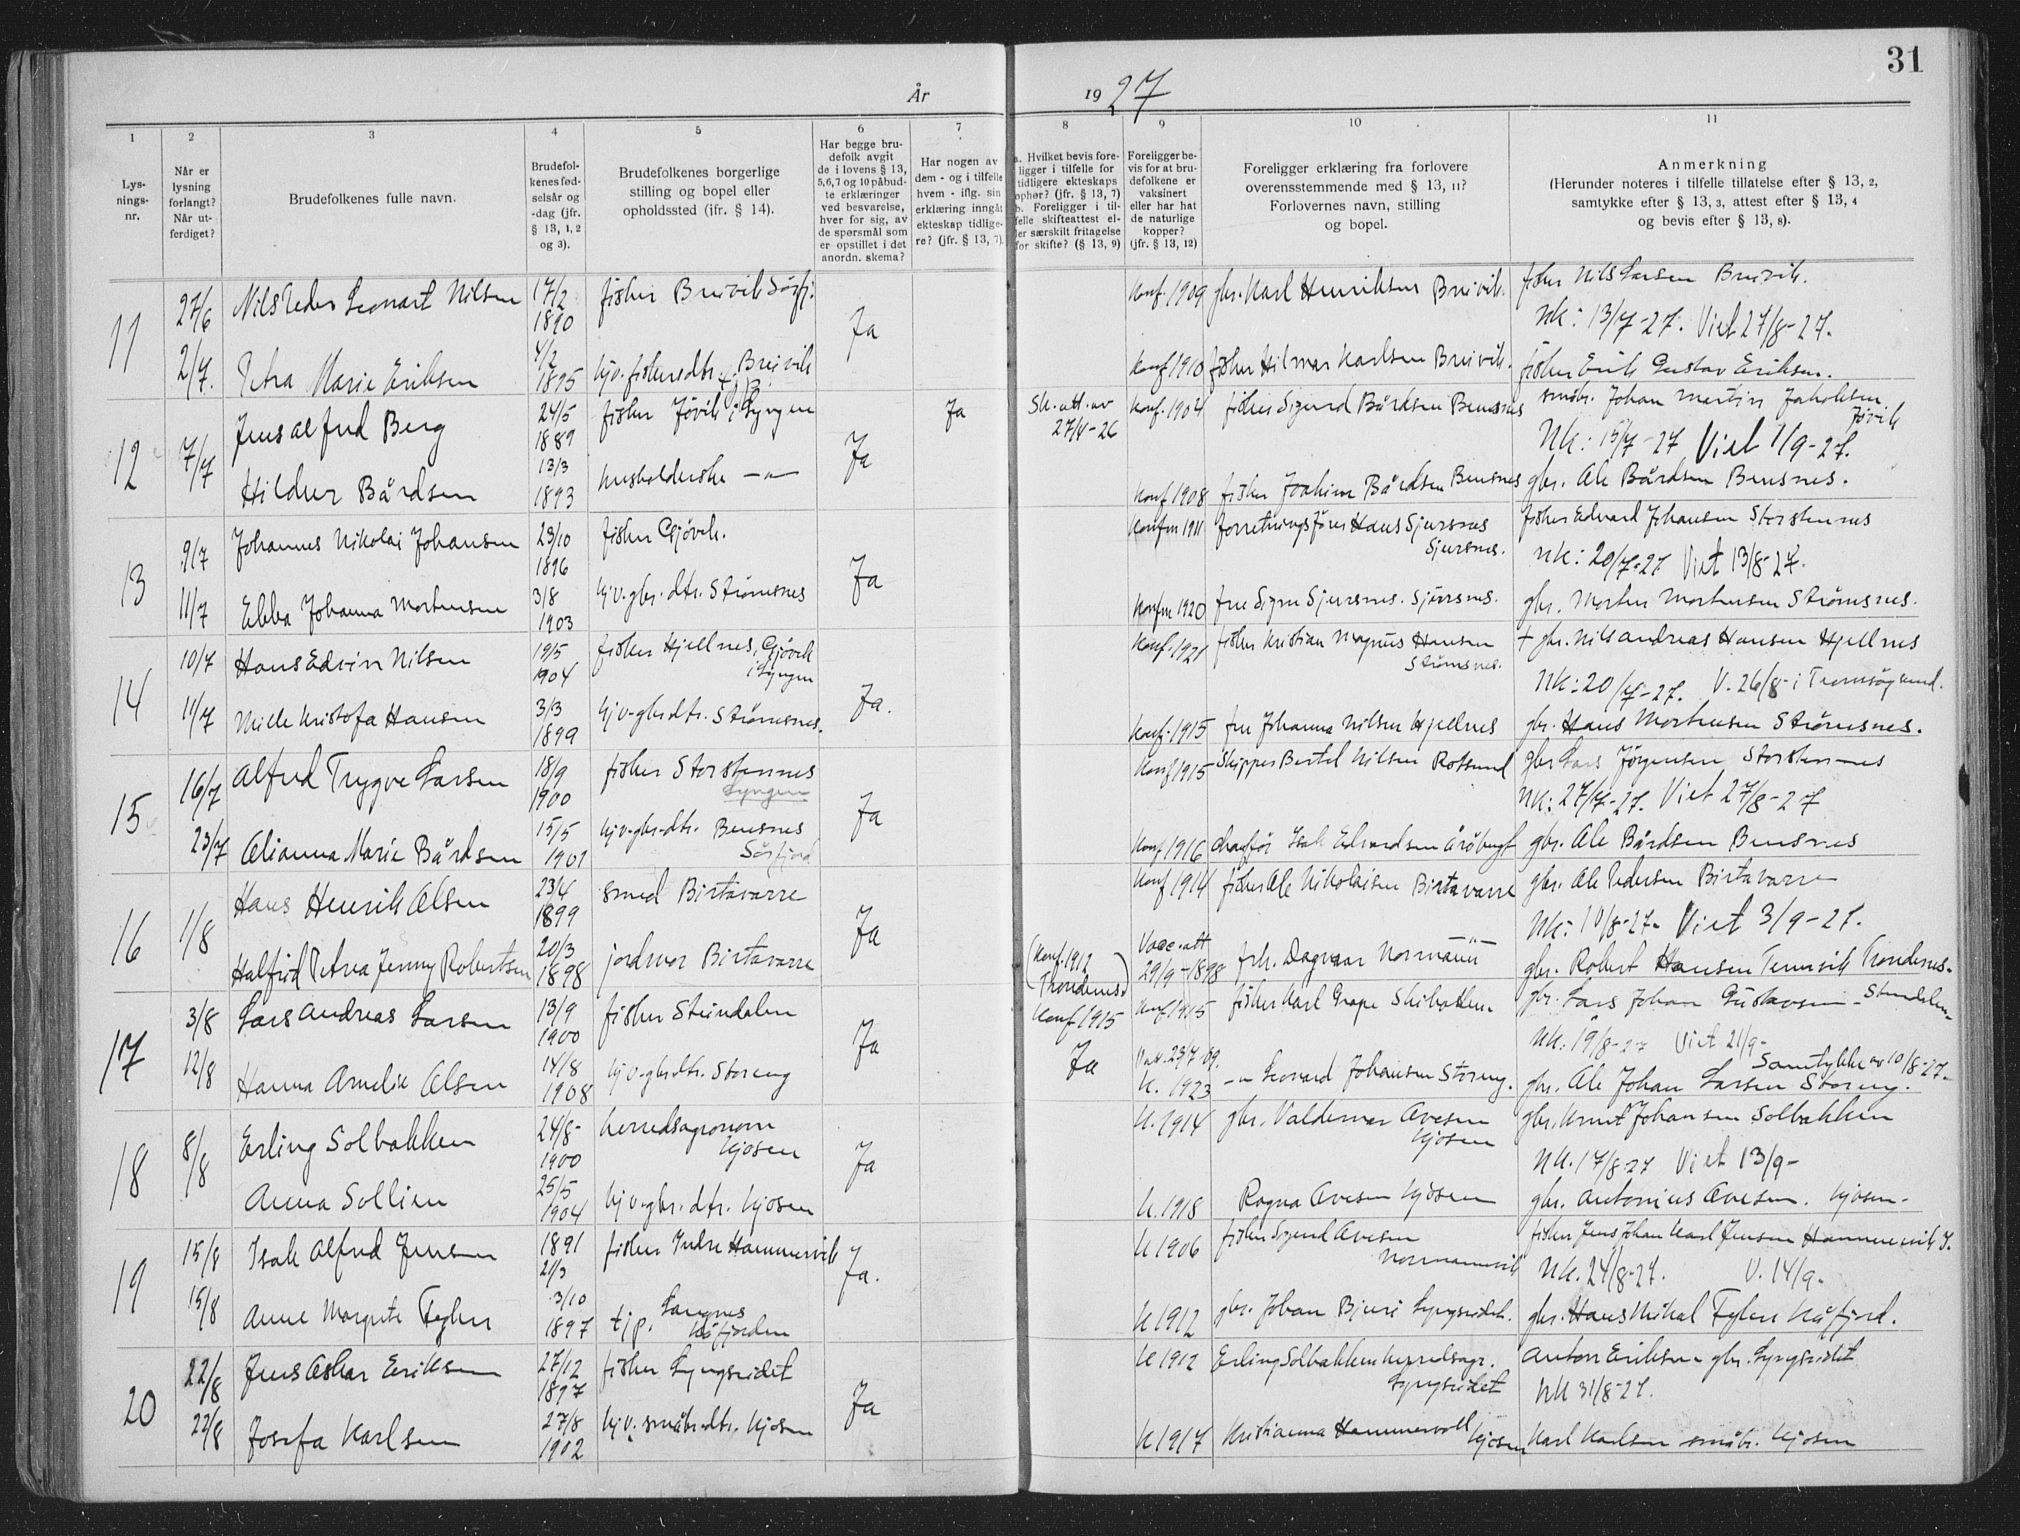 31
År
1927
1
2
3
4
5
6
7
8
9
10
11
Lys-
nings-
nr.
Når er
lysning
forlangt?
Når ut-
ferdiget?
Brudefolkenes fulle navn.
Brudefol-
kenes fød-
selsår og
-dag (jfr.
§ 13, 1, 2
og 3).
Brudefolkenes borgerlige
stilling og bopel eller
opholdssted (jfr. § 14).
Har begge bru-
defolk avgit
de i lovens § 13,
5, 6, 7 og 10 påbud-
te erklæringer
ved besvarelse,
hver for sig, av
de spørsmål som
er opstillet i det
anordn. skema?
Har nogen av
dem - og i tilfelle
hvem - iflg. sin
erklæring inngåt
ekteskap tidlige-
re? (jfr. § 13, 7).
a. Hvilket bevis fore-
ligger i tilfelle for
tidligere ekteskaps
ophør? (jfr. § 13, 7)
b. Foreligger i til-
felle skifteattest el-
ler særskilt fritagelse
for skifte? (§ 13, 9)
Foreligger be-
vis for at bru-
defolkene er
vaksinert
eller har hat
de naturlige
kopper?
(jfr. § 13, 12)
Foreligger erklæring fra forlovere
overensstemmende med § 13, 11?
Forlovernes navn, stilling
og bopel.
Anmerkning
(Herunder noteres i tilfelle tillatelse efter § 13, 2,
samtykke efter § 13, 3, attest efter § 13, 4
og bevis efter § 13, 8).
11
27/6
Nils Peder Leonart Nilsen
17/2
1890
fisker Breivik Sørfj.
Ja
Konf. 1909
gbr. Karl Henriksen Breivik.
fisker Nils Larsen Breivik.
NK: 13/7-27. Viet 27/8-27.
2/7.
Petra Marie Eriksen
4/2
1895
hjv. fiskerdtr. Breivik
Konf 1910
fisker Hilmar Karlsen Breivik.
fisker Erik Gustav Eriksen.
12
7/7
Jens Alfred Berg
24/5
1889
fisker Jøvik i Lyngen
Ja
Ja
Sk. att. av
27/4-26
Konf. 1904
fisker Sigurd Bårdsen Bensnes
småbr. Johan Martin Jakobsen
Jøvik
NK: 15/7-27 Viet 1/9-27.
Hildur Bårdsen
13/3
1893
husholderske -"-
Konf 1908
fisker Joakim Bårdsen Bensnes
gbr. Ole Bårdsen Bensnes.
13
9/7
Johannes Nikolai Johansen
23/10
1896
fisker Gjøvik.
Ja
Konfm 1911
forretningsfører Hans Sjursnes
Sjursnes.
fisker Edvard Johansen Storstennes
NK: 20/7-27 Viet 13/8-27.
11/7
Ebba Johanna Mortensen
3/8
1903
hjv. gbr. dtr. Strømsnes
Konfm 1920
fru Signe Sjursnes. Sjursnes.
gbr. Morten Mortensen Strømsnes.
14
10/7
Hans Edvin Nilsen
19/5
1904
fisker Hjellnes, Gjøvik
i Lyngen
Ja.
Konf. 1921
fisker Kristian Magnus Hansen
Strømsnes.
+ gbr. Nils Andreas Hansen Hjellnes
NK: 20/7-27. V. 26/8 - i Tromsøysund.
11/7
Milde Kristofa Hansen
3/3
1899
hjv-gbrdtr. Strømsnes.
Konf. 1915
fru Johanna Nilsen Hjellnes
gbr. Hans Mortensen Strømsnes.
15
16/7
Alfred Trygve Larsen
18/9
1900
fisker Storstennes
Lyngen
Ja
Konf 1915
Skipper Bertel Nilsen Rotsund
gbr Lars Jørgensen Storstennes
NK: 27/7-27. Viet 27/8-27
23/7
Olianna Marie Bårdsen
15/5
1901
hjv-gbr-dtr. Bensnes
Sørfjord
Konf 1916
chauffør Isak Edvardsen Årøbugt
gbr. Ole Bårdsen Bensnes
16
1/8
Hans Henrik Olsen
23/4
1899
smed Birtavarre
Ja
Konf 1914
fisker Ole Nikolaisen Birtavarre
gbr. Ole Pedersen Birtavarre
NK: 10/8-27. Viet 3/9-27.
Halfrid Petra Jenny Robertsen
20/3
1898
jordmor Birtavarre
(Konf. 1912
Trondenes)
Vacc. att
29/9-1898
frk. Dagmar Normann -"-
gbr. Robert Hansen Trondenes.
17
3/8
Lars Andreas Larsen
13/9
1900
fisker Steindalen
Ja
Konf 1915
Konf 1915
fisker Karl Grape Skibotten.
gbr. Lars Johan Gustavsen Steindalen
NK: 19/8-27 Viet 21/9-
12/8
Hanna Amelie Olsen
14/8
1908
hjv-gbrdtr. Storeng
Ja
Vak. 23/7 09.
K. 1923
-"- Leonard Johansen Storeng.
Samtykke av 10/8-27-
gbr. Ole Johan Larsen Storeng.
18
8/8
Erling Solbakken
24/8-
1900
herredsagronom
Kjosen
Ja
K. 1914
gbr. Valdemar Avesen
Kjosen
gbr. Knut Johansen Solbakken
NK. 17/8-27 Viet 13/9-
Anna Sollien
25/5
1904
hjv-gbr. dtr. Kjosen
K. 1918
Ragna Avesen Kjosen
gbr. Antonius Avesen. Kjosen-
19
15/8
Isak Alfred Jensen
1891
21/3
fisker Indre Hammervik
Ja.
K 1906
fisker Sigurd Avesen
Normannvik
fisker Jens Johan Karl Jensen Hammervik I.
NK. 24/8-27. V. 14/9-
15/8
Anne Margrete Fyhn
3/10
1897
tjp. Langnes
Kåfjorden
K 1912
gbr. Johan Bjuri Lyngseidet.
gbr. Hans Mikal Fyhn Kåfjord.
20
22/8
Jens Oskar Eriksen
27/12
1897
fisker Lyngseidet
Ja
K 1912
Erling Solbakken herredsagr.
Lyngseidet
Anton Eriksen gbr. Lyngseidet
NK 31/8-27.
22/8
Josefa Karlsen
27/8
1902
hjv. småbr.dtr. Kjosen
K 1917
Kristianna Hammervoll
Kjosen
Karl Karlsen småbr. Kjosen